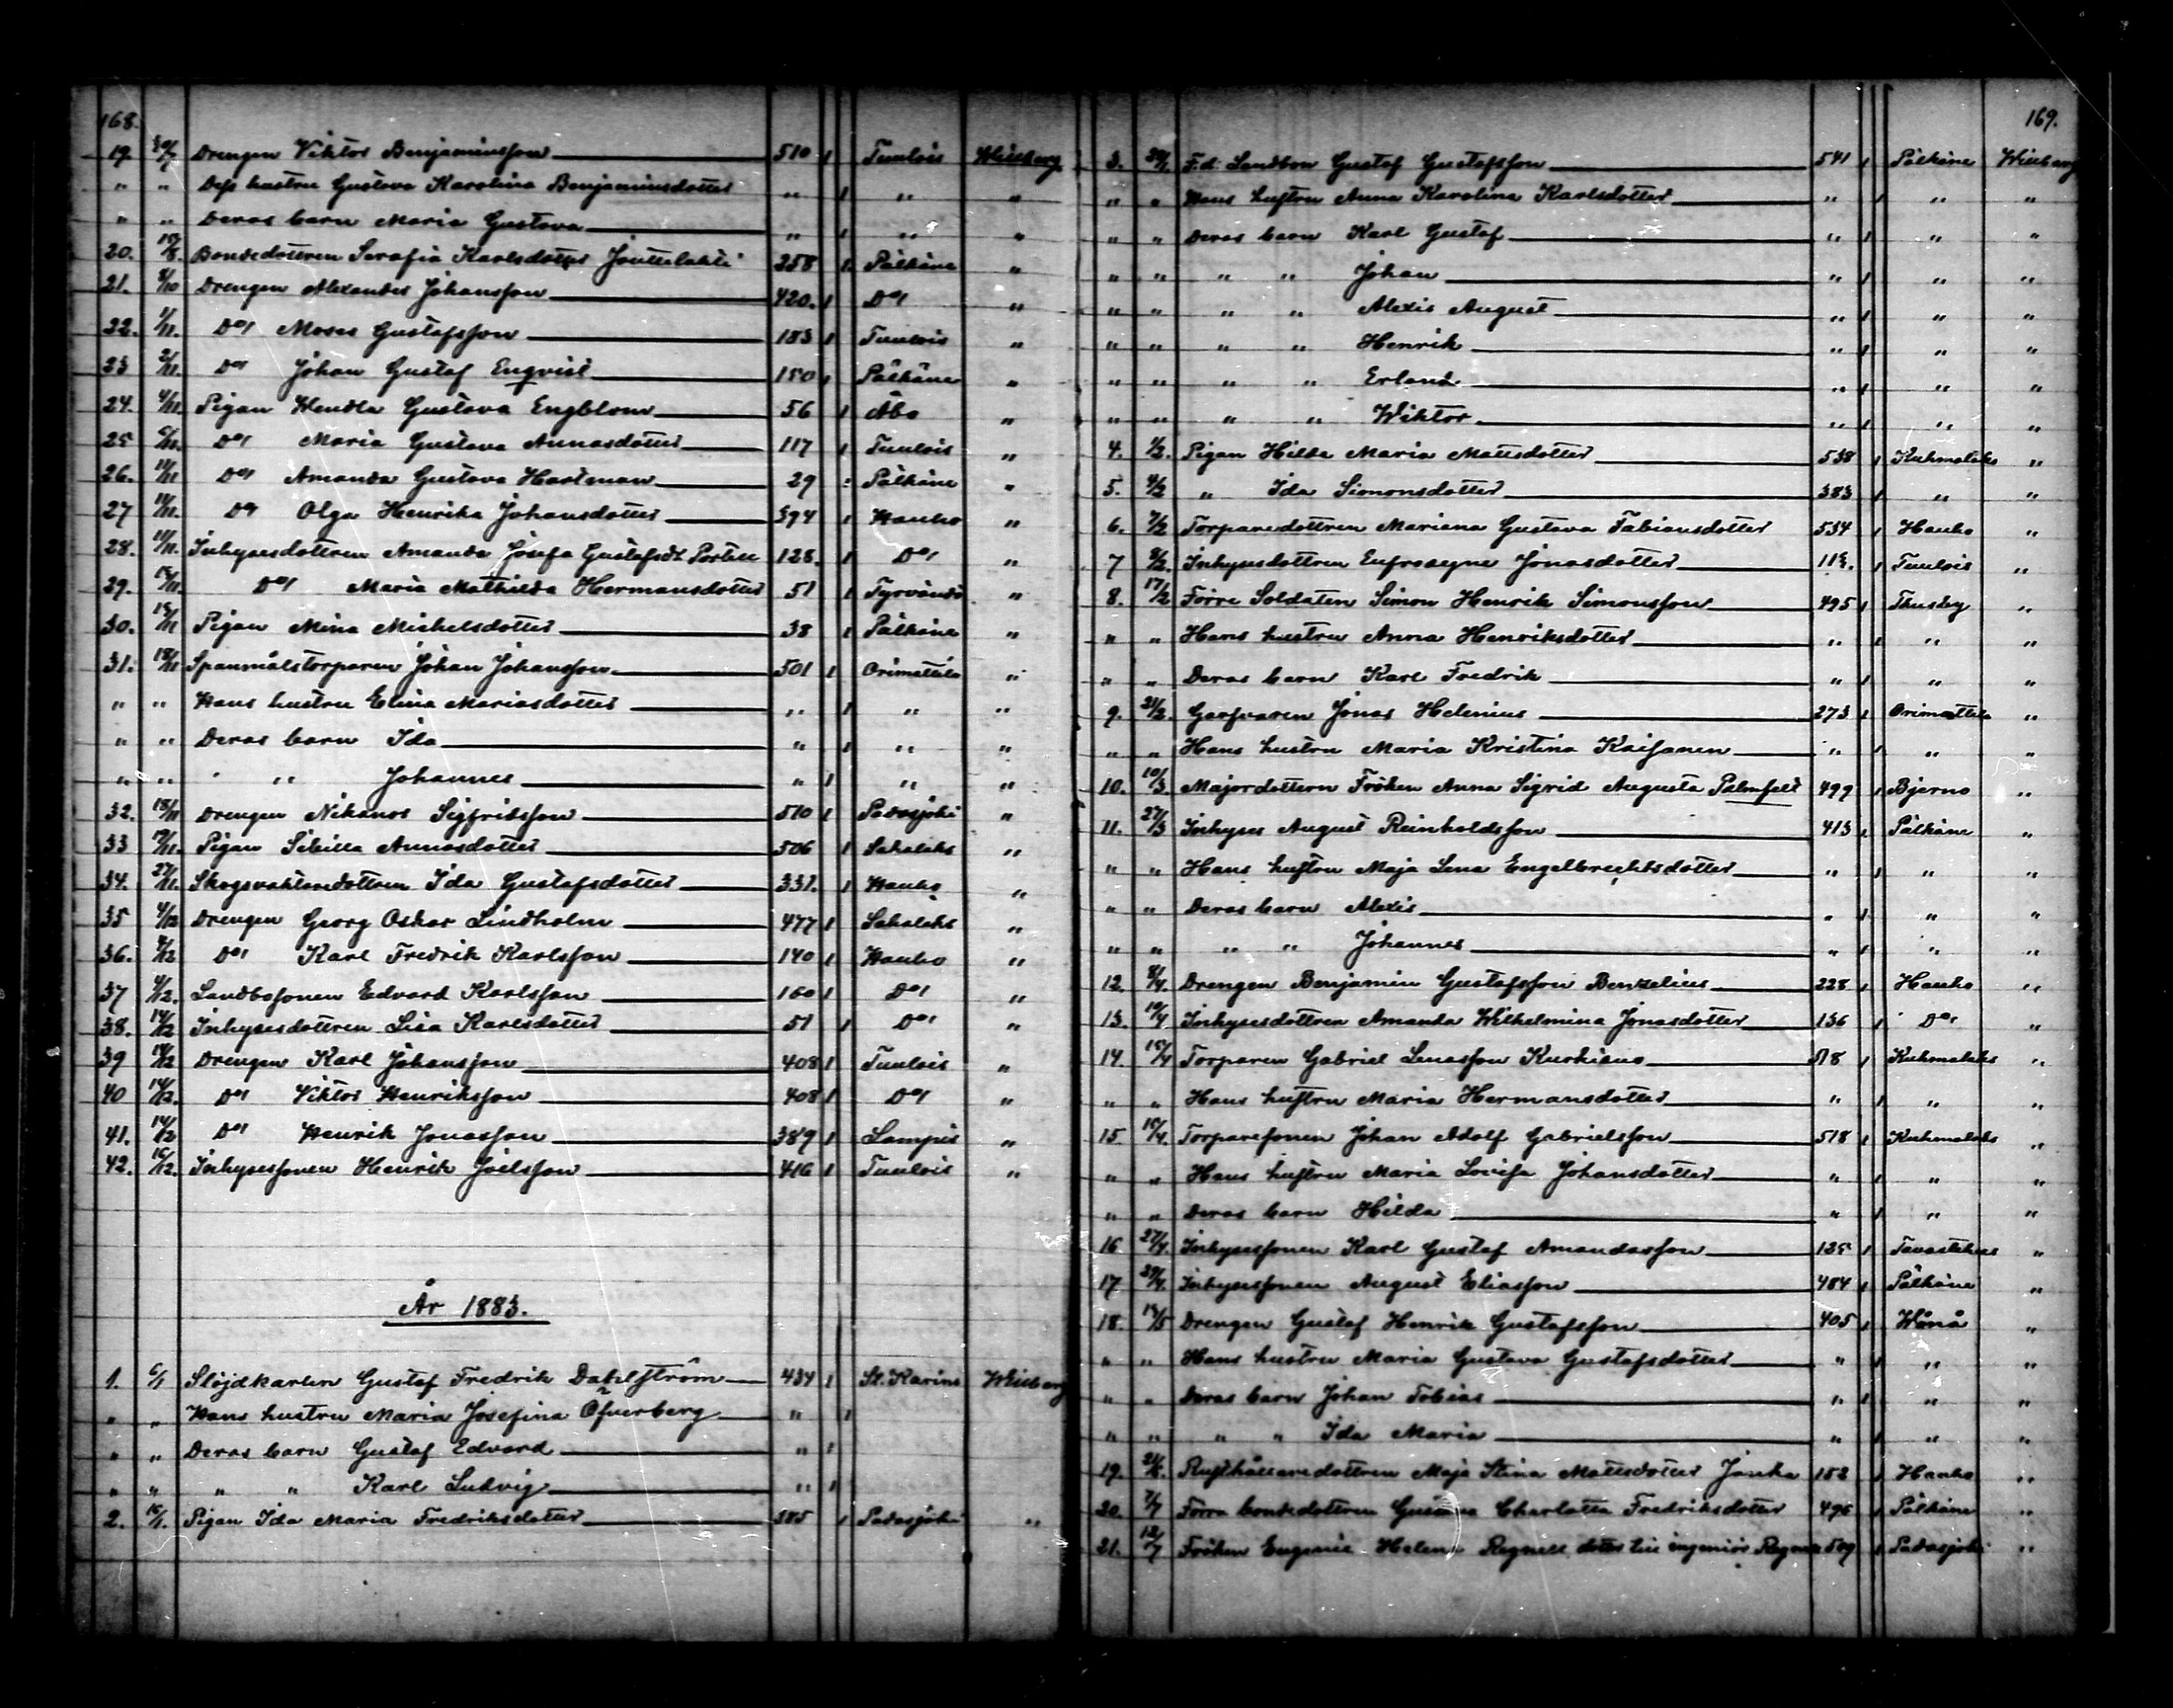 168.
19. 30/7 Drengen Viktor Benjaminsson 510 1 Tuulois Wiiberg
" " Dess hustru Gustava Karolina Benjaminsdotter " 1 " "
" " Deras barn Maria Gustava " 1 " "
20. 15/8. Bondedottren Serafia Karlsdotter Jouttelahti 258 1 Pälkäne "
21. 8/10 Drengen Alexander Johansson 420. 1 Do "
22. 1/11. Do Moses Gustafsson 183 1 Tuulois "
23 2/11. Do Johan Gustaf Enqvist 150 1 Pälkäne "
24. 4/11. Pigan Wendla Gustava Engblom 56 1 Åbo "
25 Do Maria Gustava Annasdotter 117 1 Tuulois "
26. 11/11 Do Amanda Gustava Hartman 29 Pälkäne "
27 11/11. Do Olga Henrika Johansdotter 394 1 Hauho "
28. 11/11. Inhysesdottren Amanda Josefa Gustafsdt Portin 128. 1 Do "
29. Do Maria Mathilda Hermansdotter 51 1 Tyrvändö "
30. Pigan Mina Michelsdotter 38 1 Pälkäne "
31. 18/11 Spanmålstorparen Johan Johansson 501 1 Orimattila "
" " Hans hustru Elina Mariasdotter " 1 " "
" " Deras barn Ida " 1 " "
" " " " Johannes " 1 " "
32. 18/11 Drengen Nikanor Sigfridsson 510 1 Padasjoki "
33 Pigan Sibilla Annasdotter 506 1 Sahalaks "
34. 27/11. Skogsvaktaredottren Ida Gustafsdotter 331. 1 Hauho "
35 4/12 Drengen Georg Oskar Lindholm 477 1 Sahalaks "
36. Do Karl Fredrik Karlsson 140 1 Hauho "
37 Landbosonen Edvard Karlsson 160 1 Do "
38. 14/12 Inhysesdottren Lisa Karlsdotter 51 1 Do "
39 14/12 Drengen Karl Johansson 408 1 Tuulois "
40 14/12. Do Viktor Henriksson 408 1 Do "
41. 14/12 Do Henrik Jonasson 389 1 Lampis "
42. 16/12. Inhysessonen Henrik Joelsson 416 1 Tuulois "
År 1883.
1. Slöjdkarlen Gustaf Fredrik Dahlström 434 1 St. Karins Wiiberg
" " Hans hustru Maria Josefina Öfverberg " 1
" " Deras barn Gustaf Edvard " 1
" " " " Karl Ludvig " 1
2. Pigan Ida Maria Fredriksdotter 385 1 Padasjoki "
169.
3. F.d. Landbon Gustaf Gustafsson 541 1 Pälkäne Wiiberg
" " Hans hustru Anna Karolina Karlsdotter " 1 " "
" " Deras barn Karl Gustaf " 1 " "
" " " " Johan " 1 " "
" " " " Alexis August " 1 " "
" " " " Henrik " 1 " "
" " " " Erland " 1 " "
" " " " Wiktor " 1 " "
4. 1/2. Pigan Hilda Maria Mattsdotter 538 1 Kuhmalaks "
5. 4/2 " Ida Simonsdotter 383 1 " "
6. 7/2 Torparedottren Mariana Gustava Fabiansdotter 534 1 Hauho "
7 Inhysesdottren Eufrosyne Jonasdotter 1 Tuulois "
8. 17/2 Förre Soldaten Simon Henrik Simonsson 495 1 Thusby "
" " Hans hustru Anna Henriksdotter " 1 " "
" " Deras barn Karl Fredrik " 1 " "
9. 21/2. Garfvaren Jonas Helenius 273 1 Orimattila "
" " Hans hustru Maria Kristina Kaisanen " 1 " "
10. 10/3. Majordottern Fröken Anna Sigrid Augusta Palmfelt 499 1 Bjerno "
11. 27/3 Inhyses August Reinholdsson 413 1 Pälkäne "
" " Hans hustru Maja Lena Engelbrechtsdotter " 1 " "
" " Deras barn Alexis " 1 " "
" " " " Johannes " 1 " "
12. 8/4. Drengen Benjamin Gustafsson Benzelius 228 1 Hauho "
13. 10/4 Inhysesdottren Amanda Wilhelmina Jonasdotter 136 1 Do "
14. 15/4 Torparen Gabriel Lenasson Kurkiano 518 1 Kuhmalaks "
" " Hans hustru Maria Hermansdotter " 1 " "
15 15/4. Torparesonen Johan Adolf Gabrielsson 518 1 Kuhmalaks "
" " Hans hustru Maria Lovisa Johansdotter " 1 " "
" " Deras barn Hilda " 1 " "
16 27/4 Inhysessonen Karl Gustaf Amandasson 125 1 Tavastehus "
17. 29/4. Inhysessonen August Eliasson 484 1 Pälkäne "
18. 14/5 Drengen Gustaf Henrik Gustafsson 405 1 Wånå "
" " Hans hustru Maria Gustava Gustafsdotter " 1 " "
" " Deras barn Johan Tobias " 1 " "
" " " " Ida Maria " 1 " "
19. Rusthållaredottren Maja Stina Mattsdotter Jaska 152 1 Hauho "
20. 7/7 Förra bondedottren Gustava Charlotta Fredriksdotter 496 1 Pälkäne "
21. 12/7 Fröken Eugenie Helena Regnell dotter till ingeniör Regnell 509 1 Padasjoki "